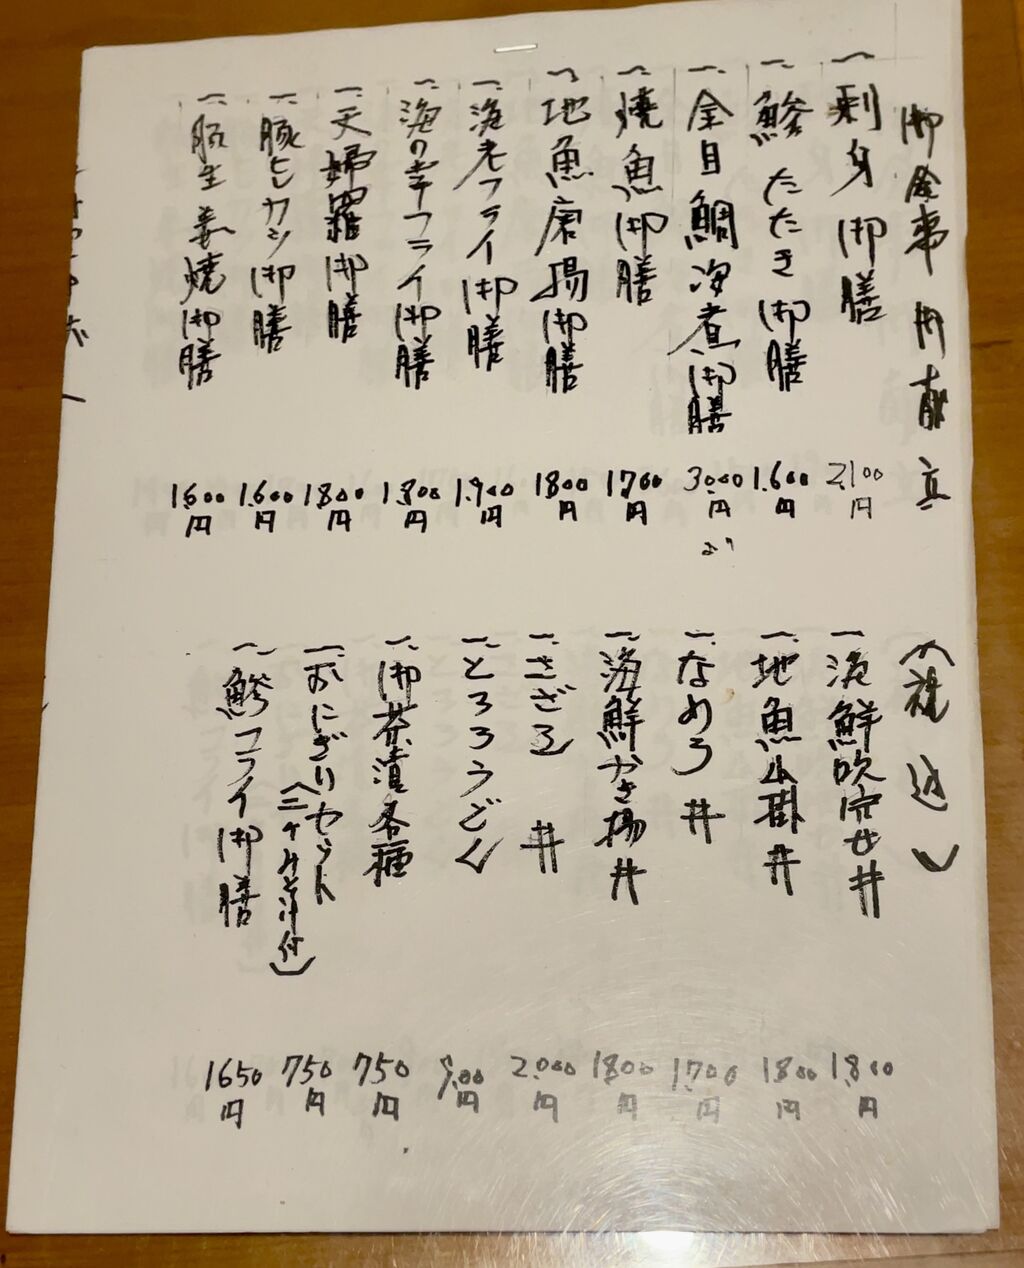 御食事御献立
一、刺身御膳 2,100円
一、鯵たたき御膳 1,600円
一、金目鯛姿煮御膳 3,000円より
一、焼魚御膳 1700円
一、地魚唐揚御膳 1800円
一、海老フライ御膳 1,900円
一、海の幸フライ御膳 1,800円
一、天婦羅御膳 1800円
一、豚ヒレカツ御膳 1,600円
一、豚生姜焼御膳 1600円
(税込)
一、海鮮吹寄せ丼 1,800円
一、地魚山掛丼 1800円
一、なめろう丼 1,700円
一、海鮮かき揚丼 1800円
一、さざえ丼 2,000円
一、とろろうどん 900円
一、御茶漬各種 750円
一、おにぎりセット 750円
(三ケみそ汁付)
一、鯵フライ御膳 1650円